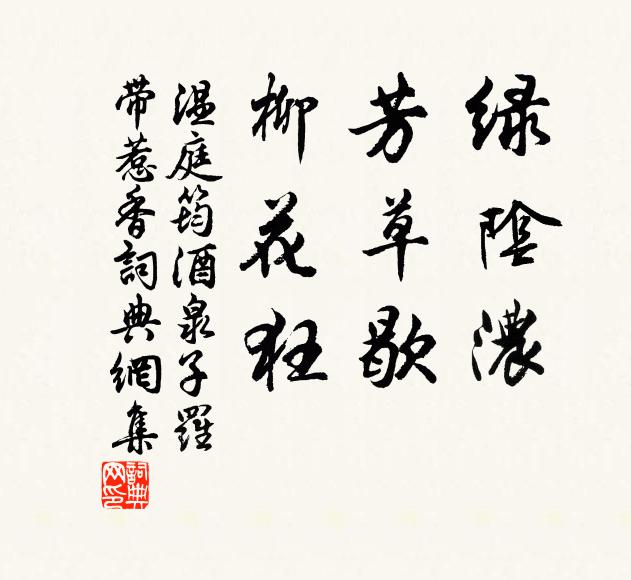 绿陰濃
芳草歇
柳花狂
温庭筠酒泉子羅
带惹香詞典網集
詞典网印